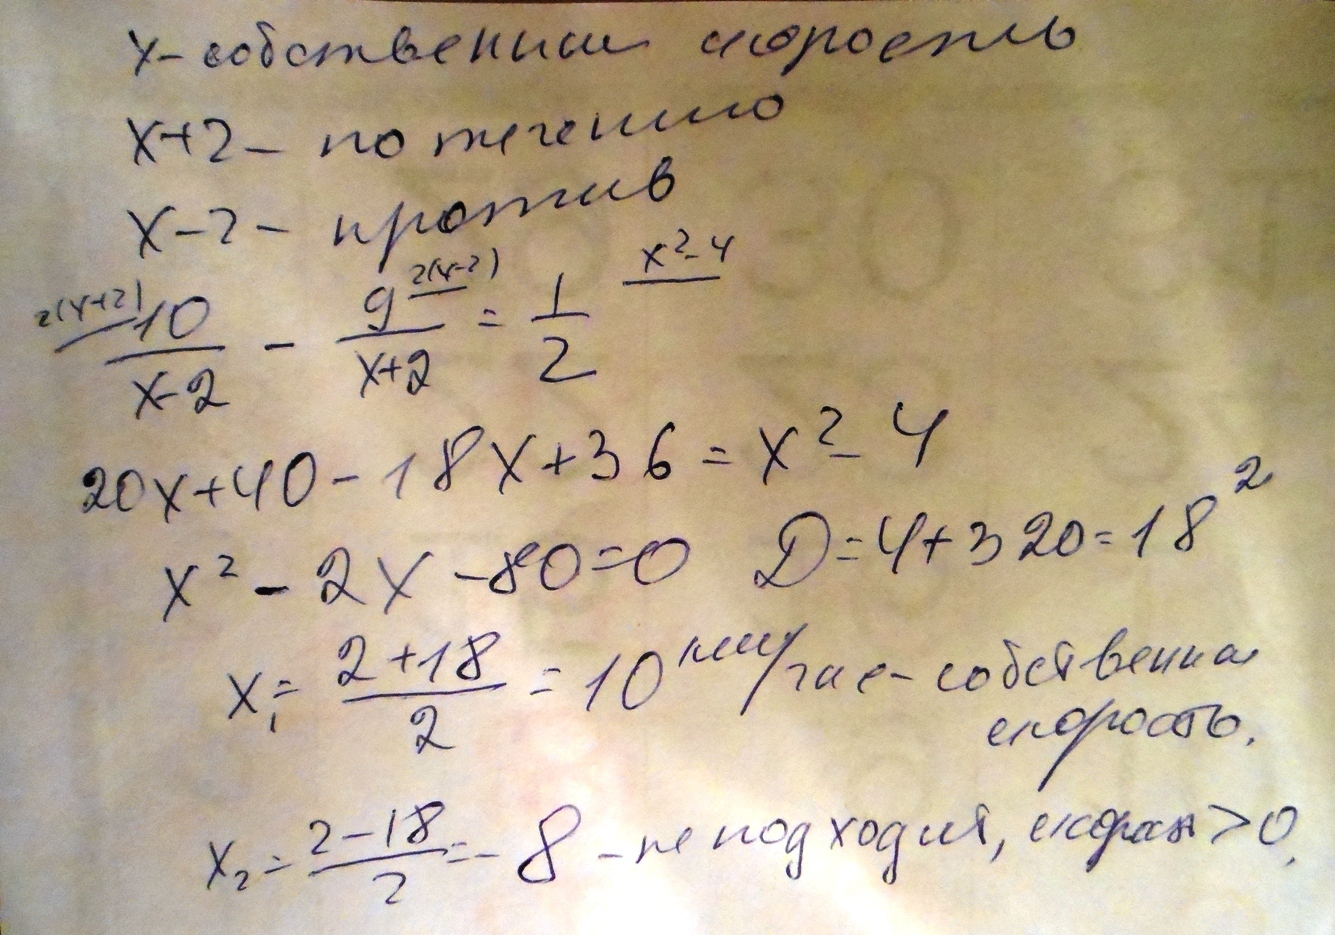 x - собственная скорость
x+2 - по течению
x-2 - против
2(x+2) 10/(x-2) - 9 2(x-2)/(x+2) = 1/2 x²-4
20x+40-18x+36 = x²-4
x²-2x-80=0 D=4+320=18²
x₁ = (2+18)/2 = 10 км/час - собственная
скорость.
x₂ = (2-18)/2 = -8 - не подходит, скорость >0.